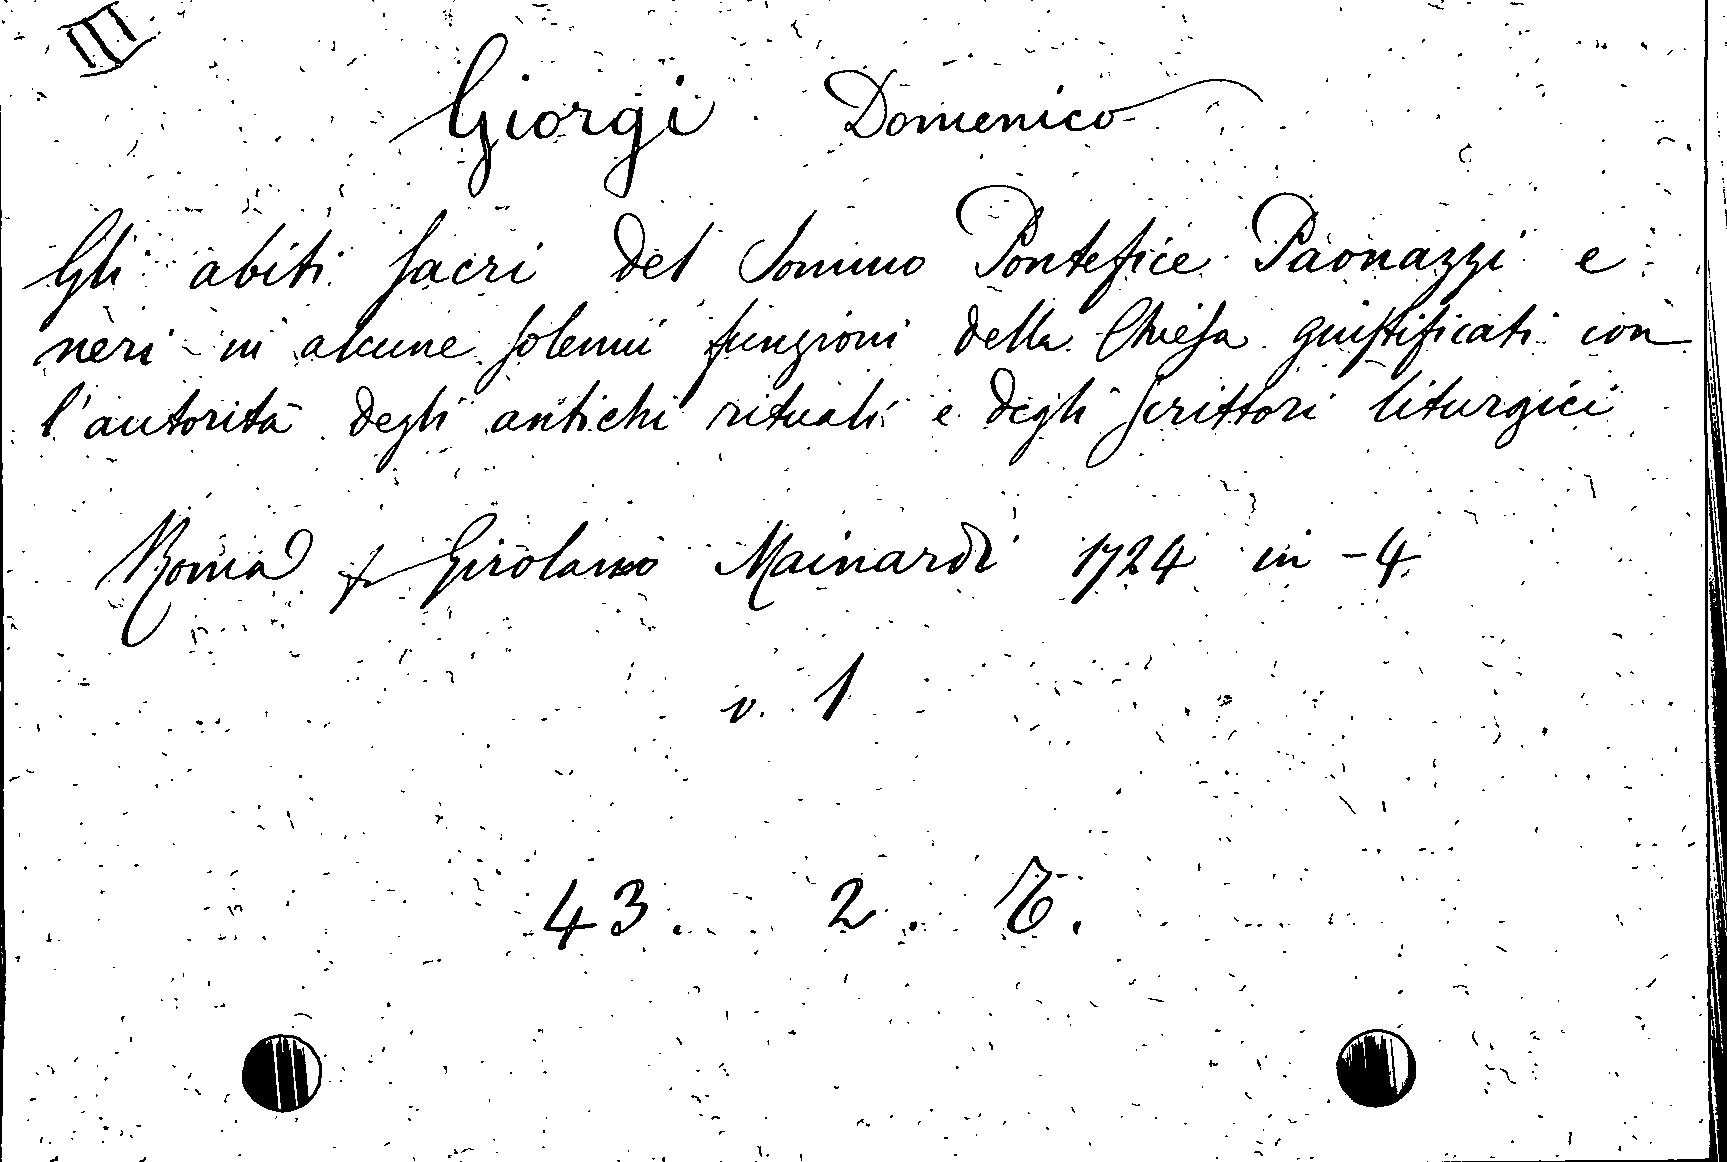 III
Giorgi Domenico
Gli abiti sacri del Sommo Pontefice Paonazzi e
neri in alcune solenni funzioni della Chiesa giustificati con
l'autorità degli antichi rituali e degli scrittori liturgici
Roma Girolamo Mainardi 1724 in - 4.
v. 1
43. 2.